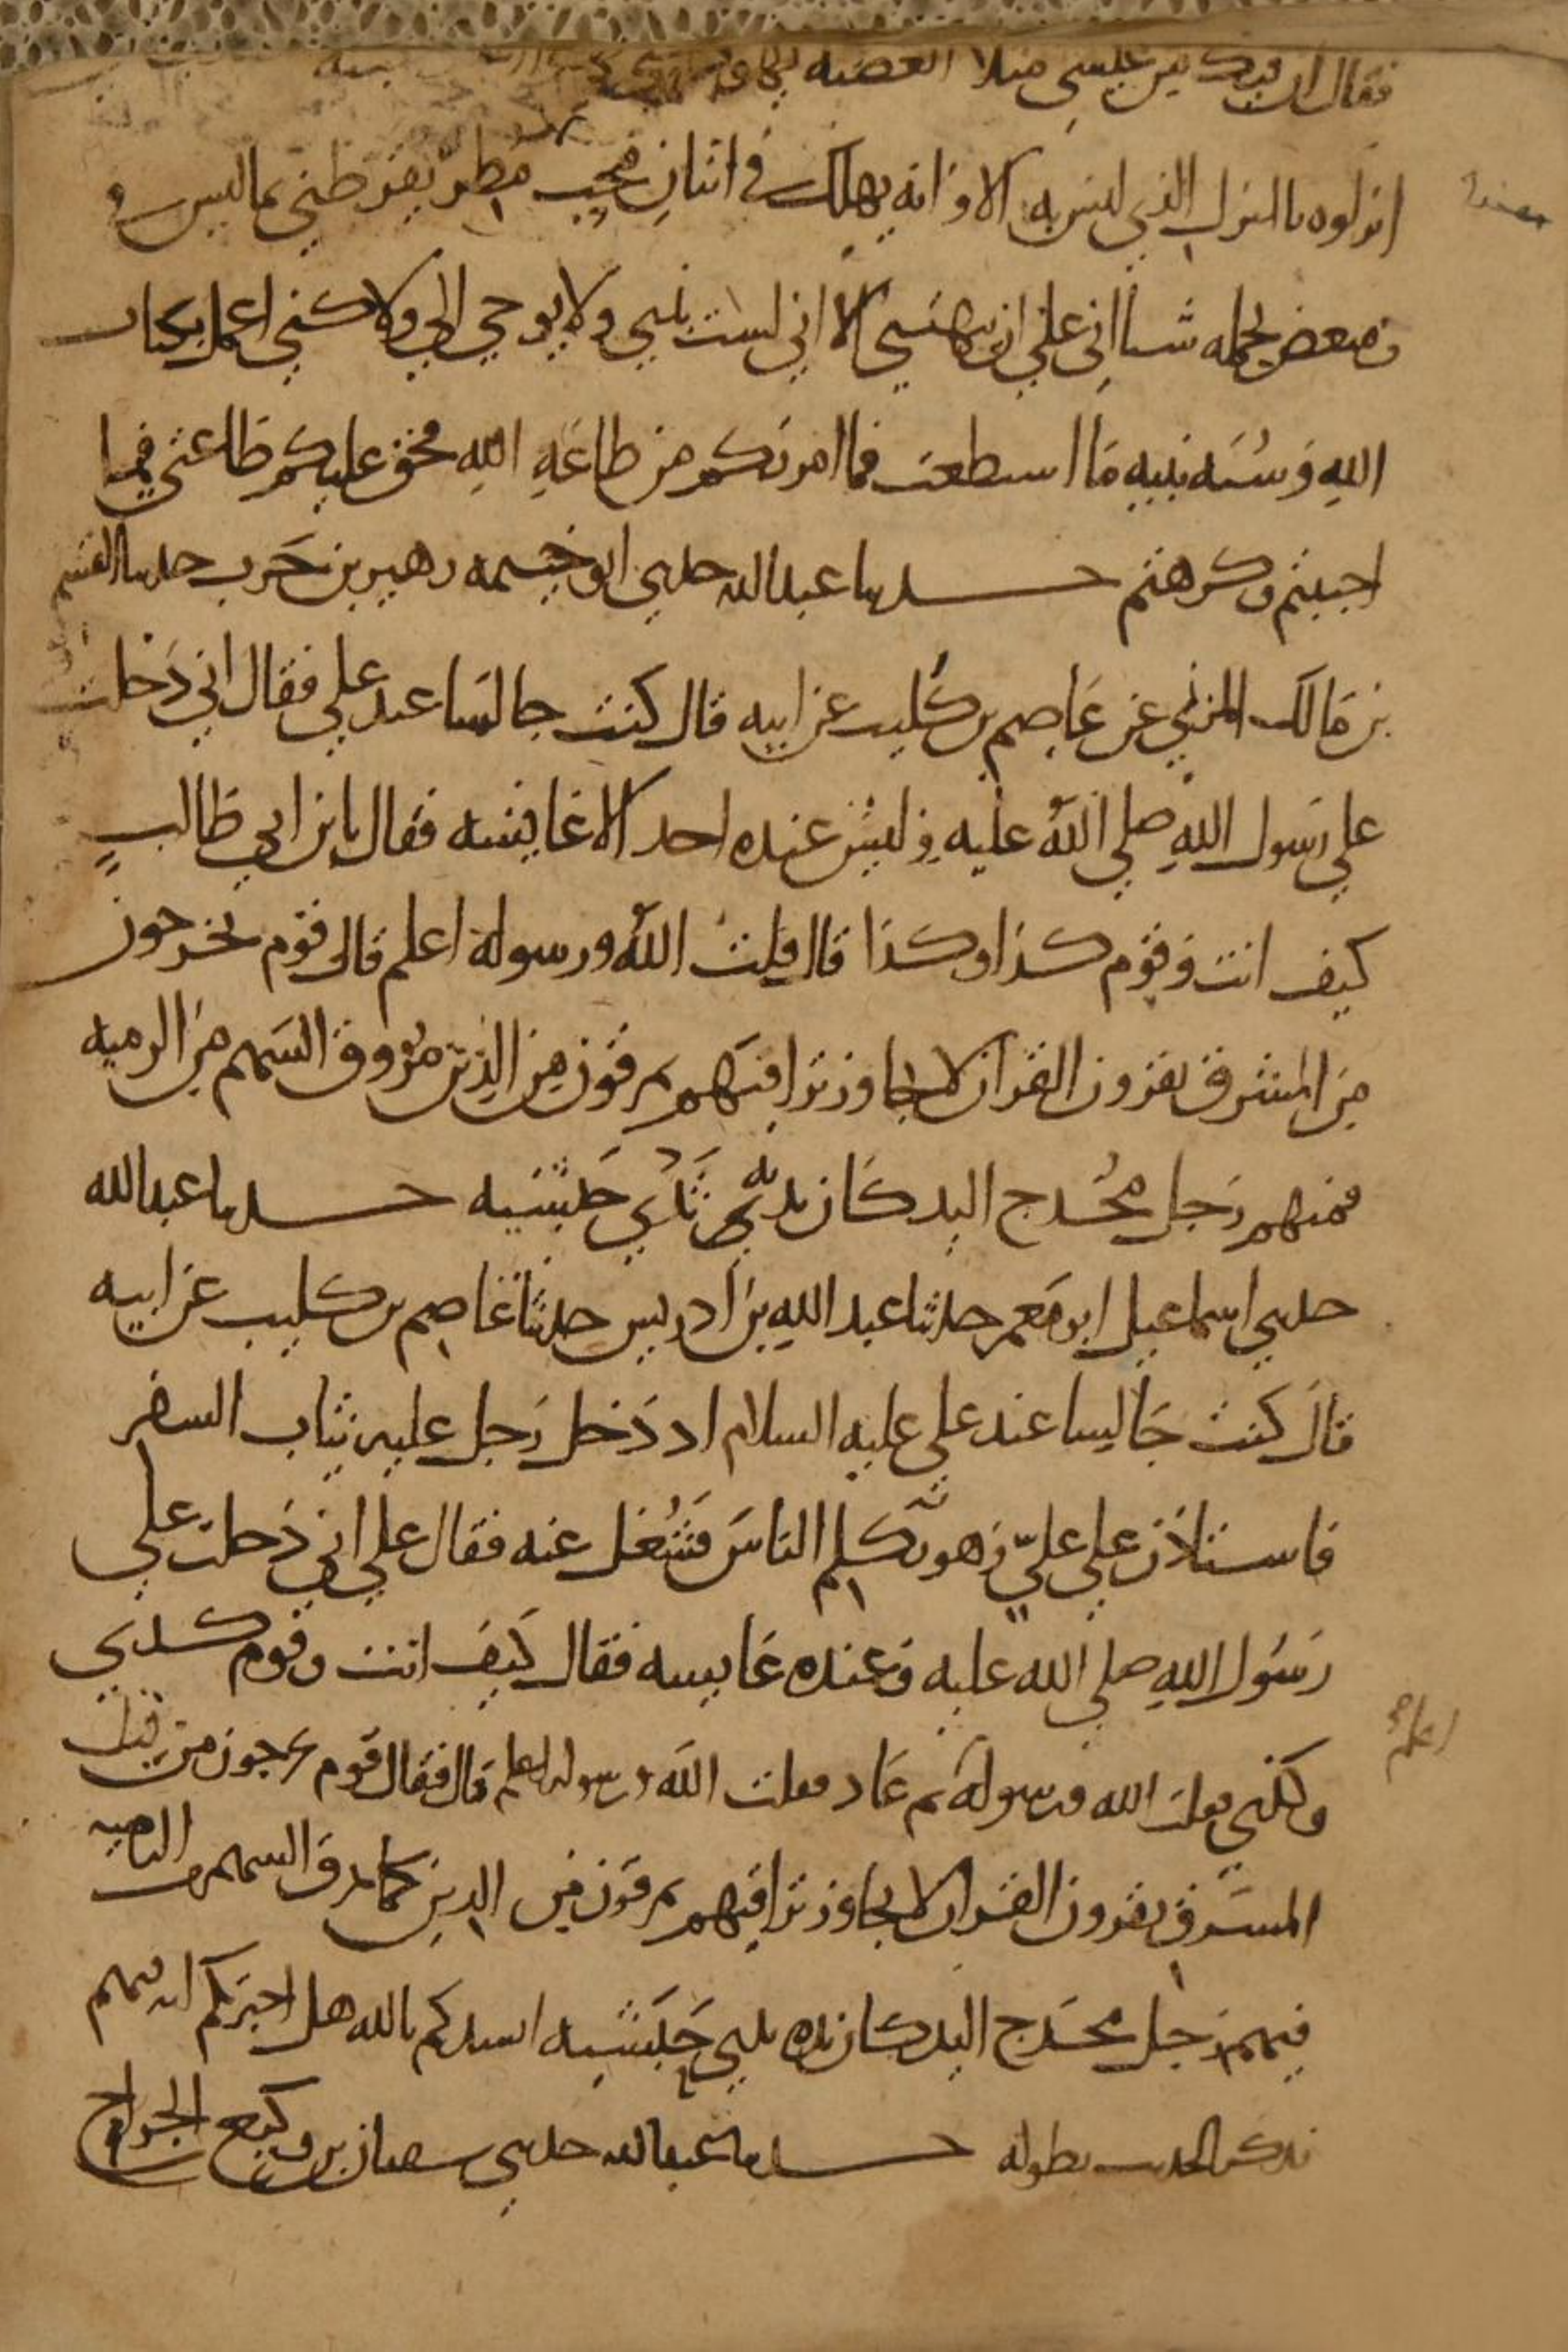 فقال ان فيك من عيسى مثلا ابغضته
انزلوه بالمنزل الذي ليس به الا وانه يهلك في اثنان محب مطر يقرظني بما ليس في
ومبغض يحمله شناني على ان يبهتني الا اني لست بنبي ولا يوحى الي ولاكني اعمل بكتاب
الله وسنه نبيه ما استطعت فما امرتكم من طاعه الله فحق عليكم طاعتي فيما
احببتم وكرهتم حدثنا عبدالله حدثني ابو خيثمه زهير بن حرب حدثنا القسم
بن مالك المزني عن عاصم بن كليب عن ابيه قال كنت جالسا عند علي فقال اني دخلت
على رسول الله صلى الله عليه وليس عنده احد الا عايشه فقال يابن ابي طالب
كيف انت وقوم كذا وكذا قال قلت الله ورسوله اعلم قال قوم يخرجون
من المشرق يقرون القران لا يجاوز تراقيهم يمرقون من الدين مروق السهم من الرميه
فمنهم رجل مخدج اليد كان يديه ثدي حبشيه حدثنا عبدالله
حدثني اسماعيل ابو معمر حدثنا عبد الله بن ادريس حدثنا عاصم بن كليب عن ابيه
قال كنت جالسا عند علي عليه السلام اذ دخل رجل عليه ثياب السفر
فاستاذن على علي وهو يكلم الناس فشغل عنه فقال علي اني دخلت على
رسول الله صلى الله عليه وعنده عايشه فقال كيف انت وقوم كذي
وكذي فقلت الله ورسوله ثم عاد فقلت الله ورسوله اعلم قال فقال قوم يخرجون من قبل
اعلم
المشرق يقرون القران لا يجاوز تراقيهم يمرقون من الدين كما يمرق السهم من الرميه
فيهم رجل مخدج اليد كان يده ثدي حبشيه انشدكم بالله هل اخبرتكم انه فيهم
فذكر الحديث بطوله حدثنا عبدالله حدثني سفيان بن وكيع الجراح